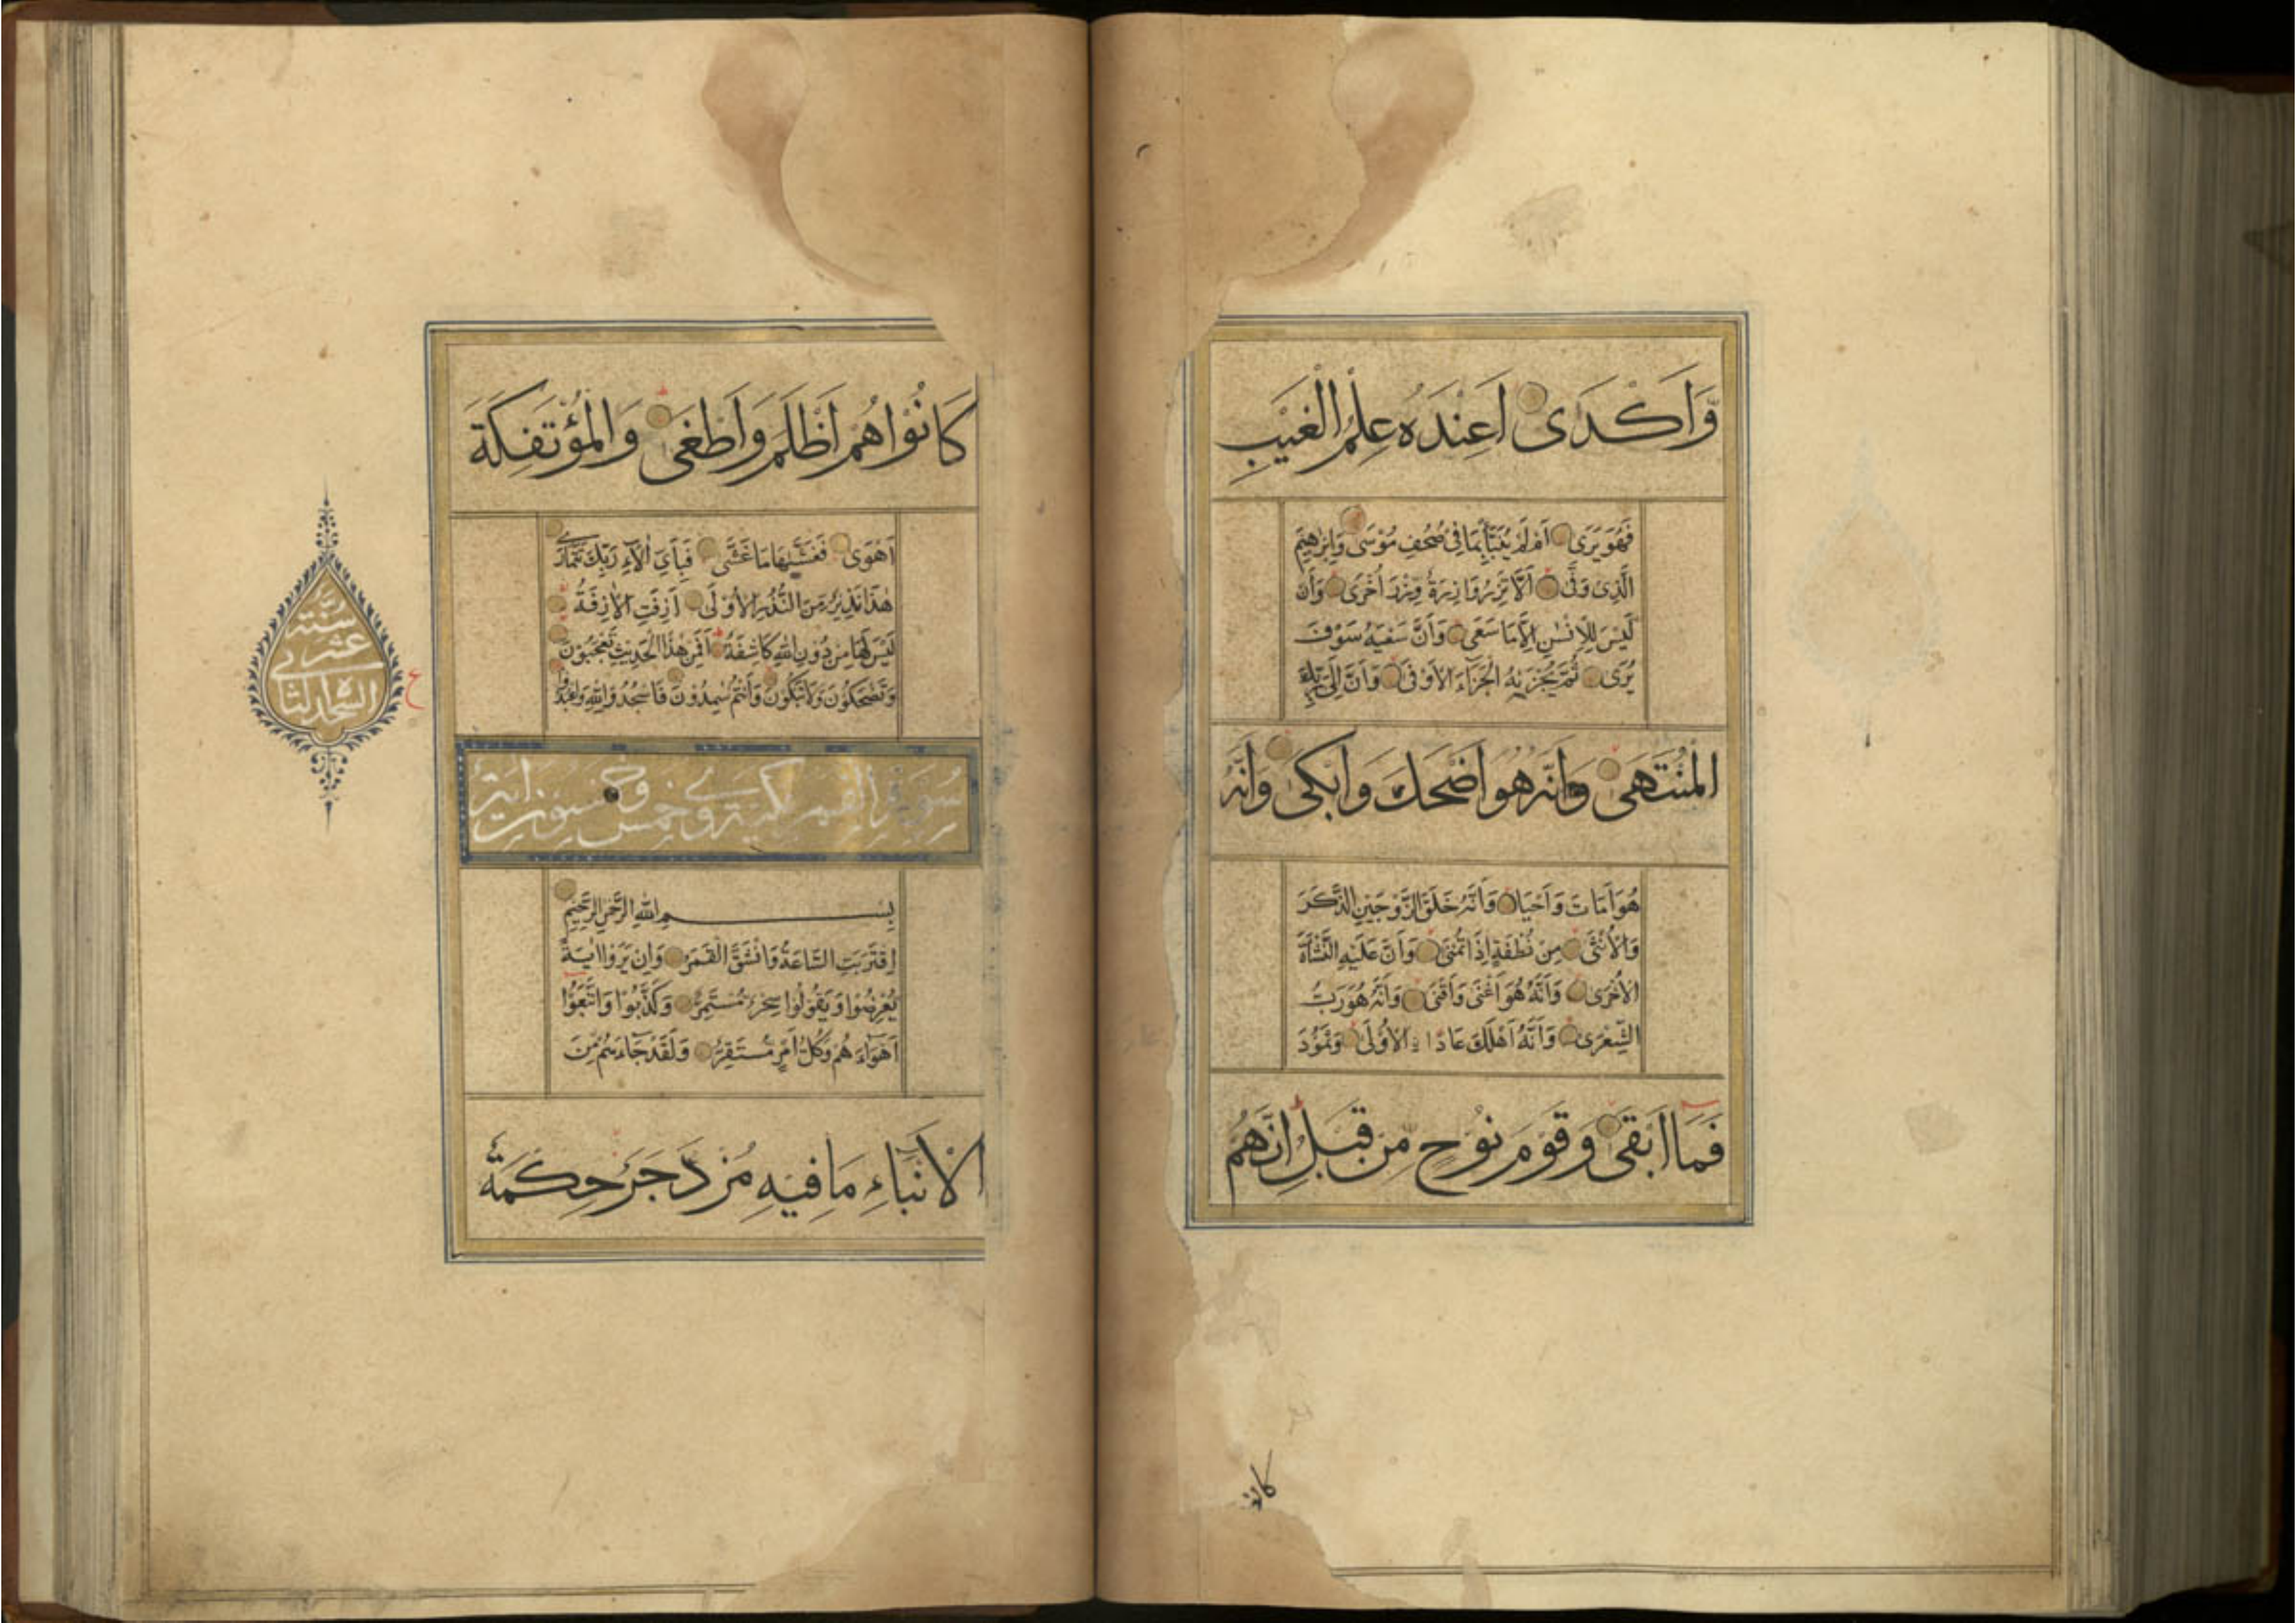 وَاَكْدَى اَعِنْدَهُ عِلْمُ الْغَيْبِ
فَهُوَ يَرَى اَمْ لَمْ يُنَبَّأْ بِمَا فِى صُحُفِ مُوْسَى وَاِبْرٰهِيْمَ
الَّذِى وَفّٰى اَلَّا تَزِرُ وَازِرَةٌ وِزْرَ اُخْرَى وَاَنْ
لَيْسَ لِلْاِنْسٰنِ اِلَّا مَا سَعَى وَاَنَّ سَعْيَهُ سَوْفَ
يُرَى ثُمَّ يُجْزٰيهُ الْجَزَآءَ الْاَوْفَى وَاَنَّ اِلَى رَبِّكَ
الْمُنْتَهَى وَاَنَّهُ هُوَ اَضْحَكَ وَاَبْكَى وَاَنَّهُ
هُوَ اَمَاتَ وَاَحْيَا وَاَنَّهُ خَلَقَ الزَّوْجَيْنِ الذَّكَرَ
وَالْاُنْثَى مِنْ نُطْفَةٍ اِذَا تُمْنَى وَاَنَّ عَلَيْهِ النَّشْاَةَ
الْاُخْرَى وَاَنَّهُ هُوَ اَغْنَى وَاَقْنَى وَاَنَّهُ هُوَ رَبُّ
الشِّعْرَى وَاَنَّهُ اَهْلَكَ عَادًا الْاُوْلَى وَثَمُوْدَ
فَمَا اَبْقَى وَقَوْمَ نُوْحٍ مِنْ قَبْلُ اِنَّهُمْ
كانو
كَانُوْا هُمْ اَظْلَمَ وَاَطْغَى وَالْمُؤْتَفِكَةَ
اَهْوَى فَغَشّٰيهَا مَا غَشَّى فَبِاَىِّ اٰلَآءِ رَبِّكَ تَتَمَارٰى
هٰذَا نَذِيْرٌ مِنَ النُّذُرِ الْاُوْلَى اَزِفَتِ الْاٰزِفَةُ
لَيْسَ لَهَا مِنْ دُوْنِ اللّٰهِ كَاشِفَةٌ اَفَمِنْ هٰذَا الْحَدِيْثِ تَعْجَبُوْنَ
وَتَضْحَكُوْنَ وَلَا تَبْكُوْنَ وَاَنْتُمْ سٰمِدُوْنَ فَاسْجُدُوْا لِلّٰهِ وَاعْبُدُوْا
سورة القمر مكية وهى خمس وخمسون اية
بِسْمِ اللّٰهِ الرَّحْمٰنِ الرَّحِيْمِ
اِقْتَرَبَتِ السَّاعَةُ وَانْشَقَّ الْقَمَرُ وَاِنْ يَرَوْا اٰيَةً
يُعْرِضُوْا وَيَقُوْلُوْا سِحْرٌ مُسْتَمِرٌّ وَكَذَّبُوْا وَاتَّبَعُوْا
اَهْوَآءَهُمْ وَكُلُّ اَمْرٍ مُسْتَقِرٌّ وَلَقَدْ جَآءَهُمْ مِنَ
الْاَنْبَآءِ مَا فِيْهِ مُزْدَجَرٌ حِكْمَةٌ
ع